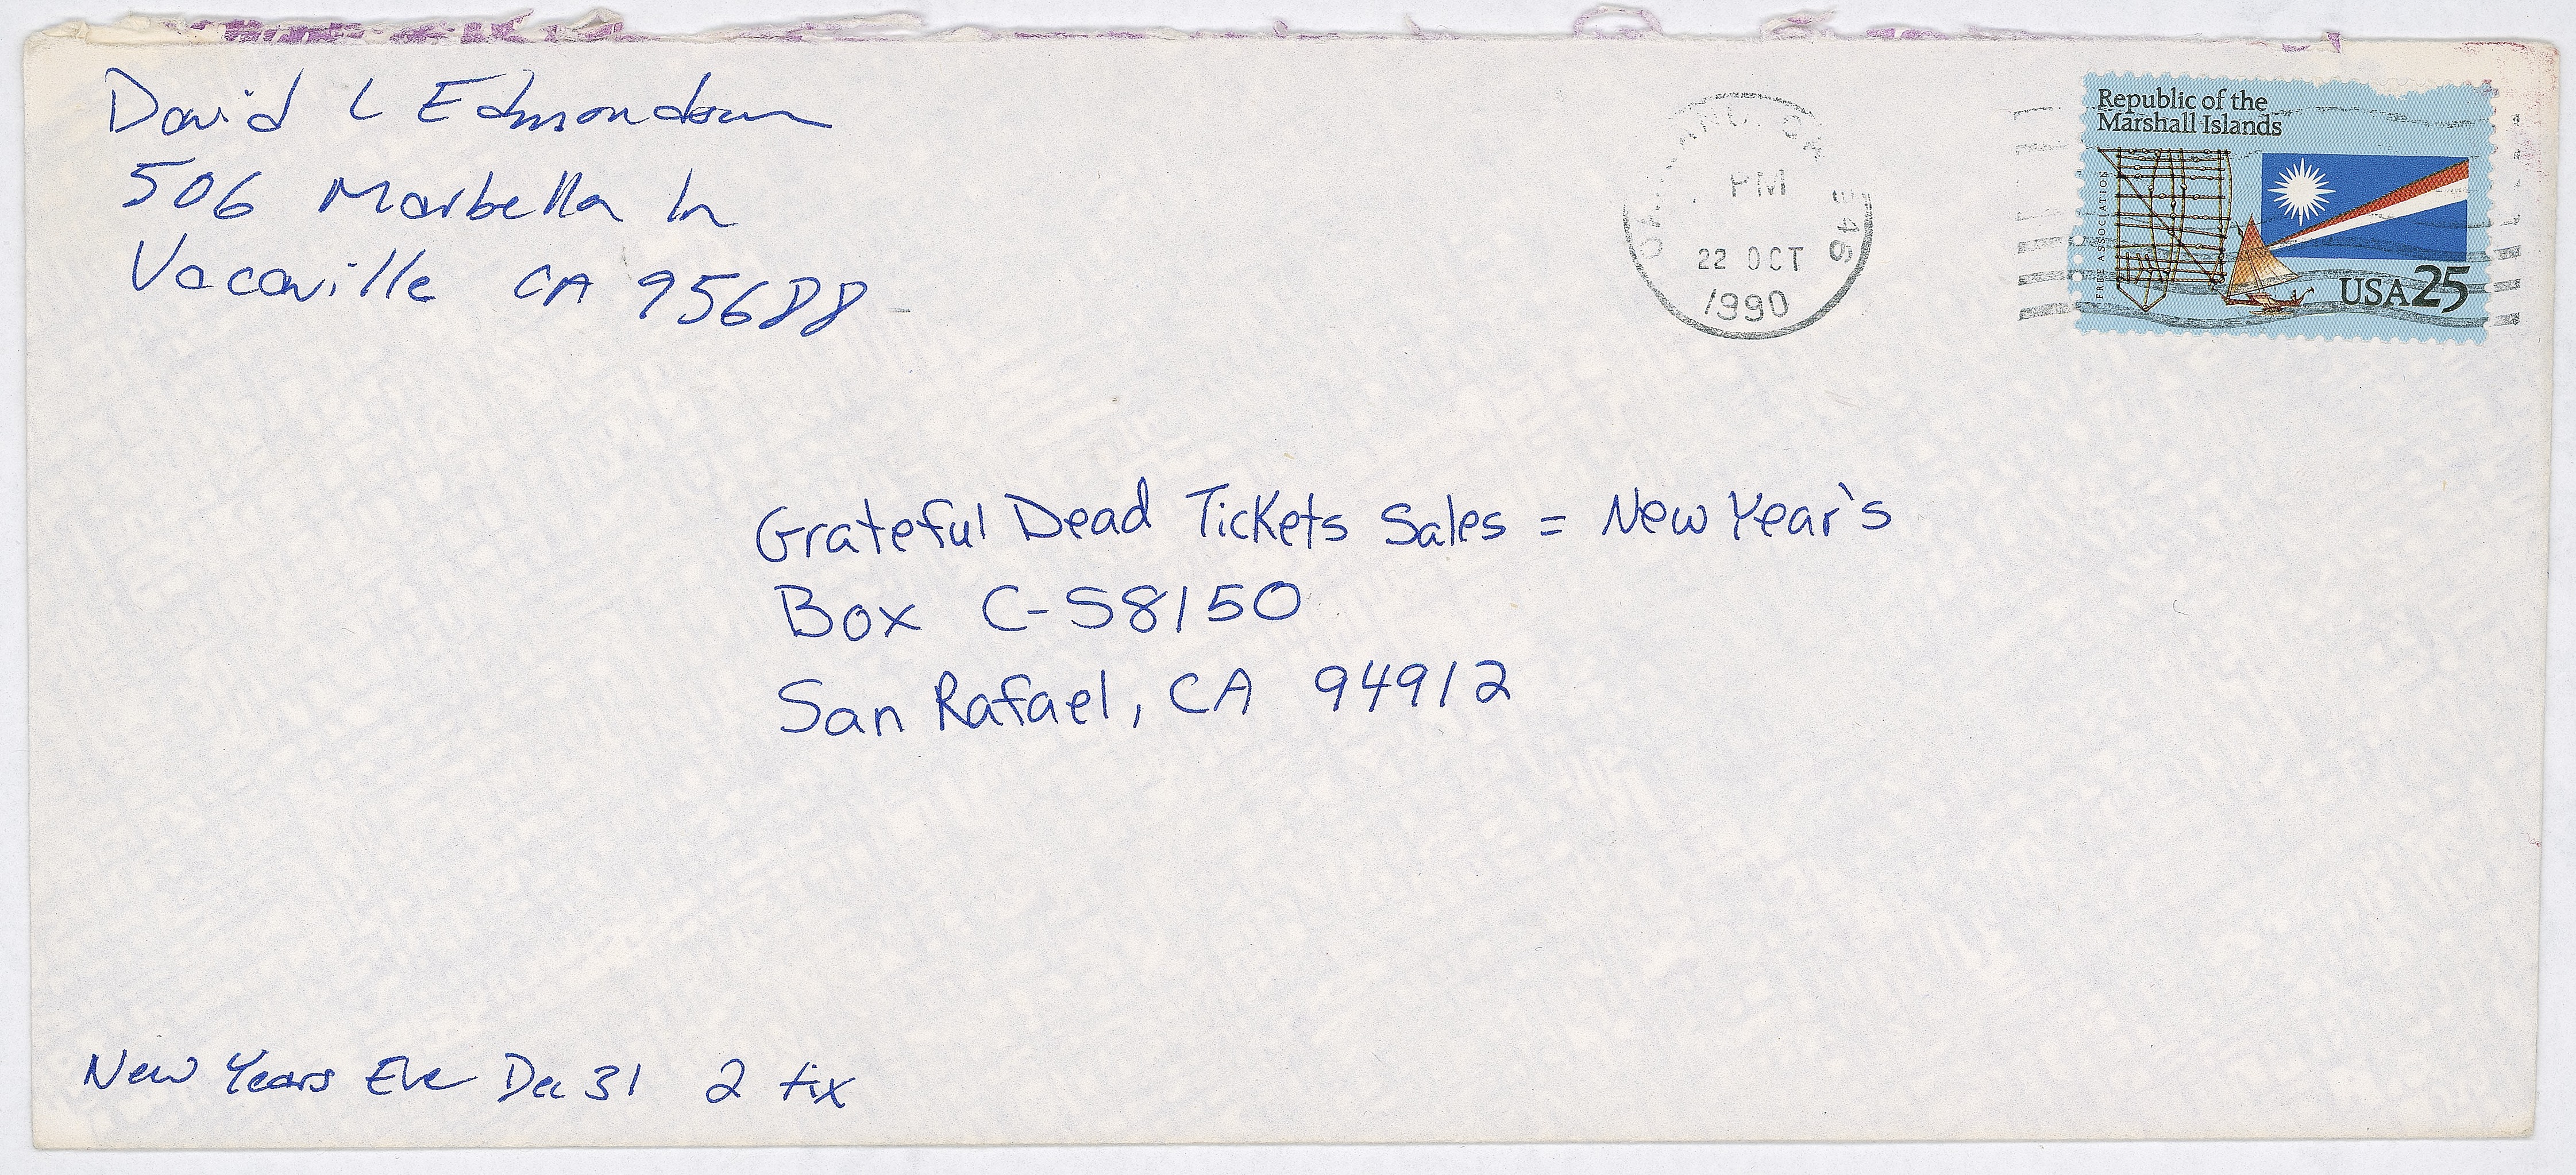 David L Edmondson
506 Marbella Ln
Vacaville CA 95688
PM
22 OCT
1990
946
Republic of the
Marshall Islands
FREE ASSOCIATION
USA 25
Grateful Dead Tickets Sales = New Year's
Box C-S8150
San Rafael, CA 94912
New Years Eve Dec 31 2 tix